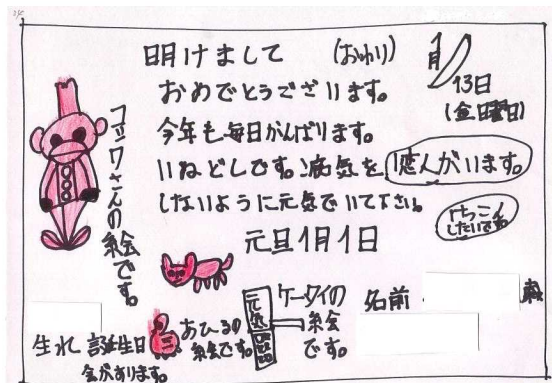 明けまして
(おわり)
おめでとうございます。
今年も毎日がんばります。
いねどしです。病気を
しないように元気でいて下さい。
元旦1月1日
1月
13日
(金曜日)
恋人がいます。
けっこん
したいです。
コックさんの絵です。
生れ 誕生日
会があります。
あひるの
絵です。
元気
ケータイの
絵
です。
名前